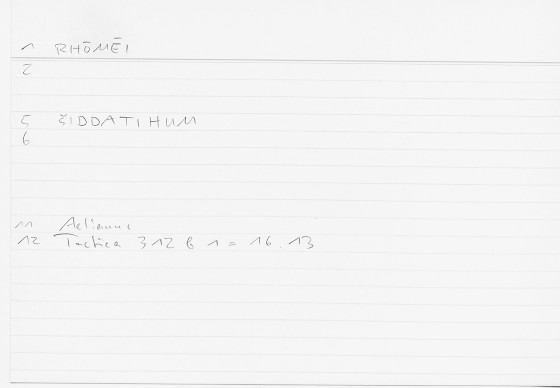 1 RHŌMĒI
2
5 ŠIDDATI HUM
6
11 Aelianus
12 Tactica 312 b 1 = 16.13